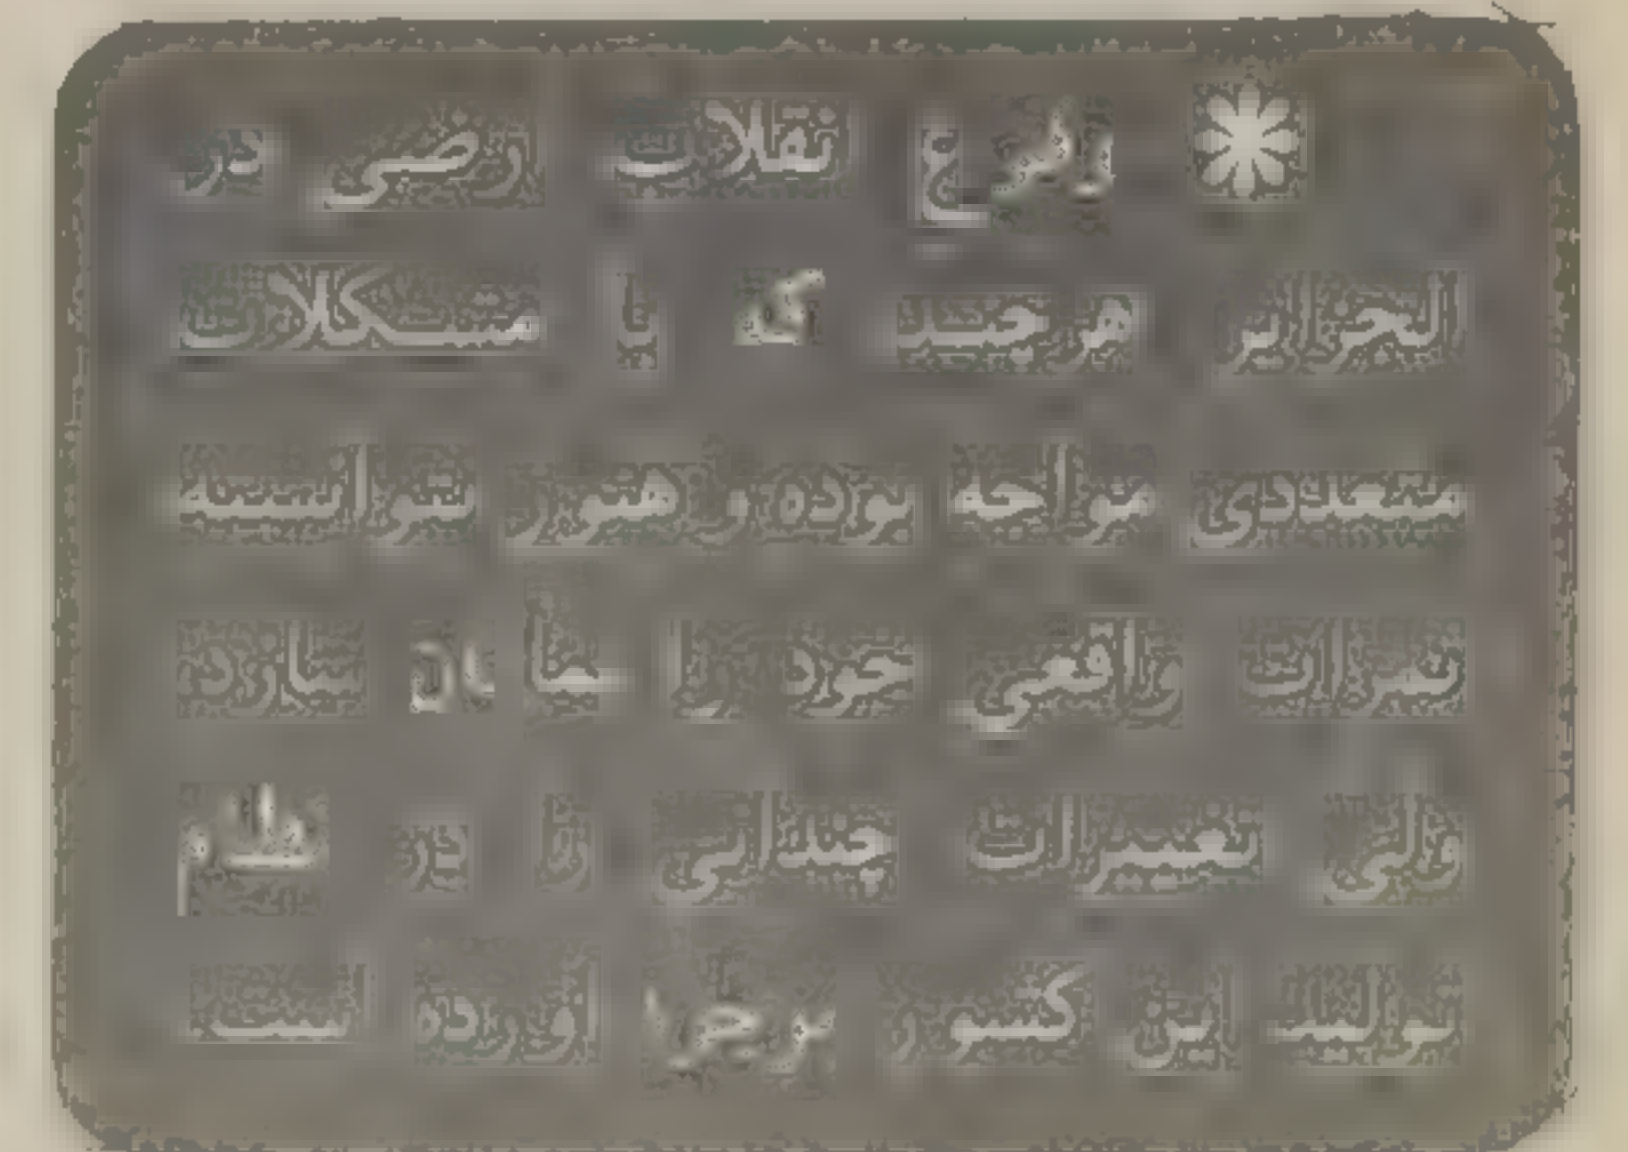 نقلات ارضی در
الجزایر هر چند که با مشکلات
متعددی مواجه بوده و هنوز نتوانسته
تمرات واقعی خود را بما دارد
ولی تغییرات چندانی را در
تولید این کشور بوجود آورده است